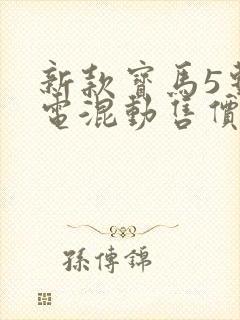 新款寶馬5
電混動售價
孫傳錦